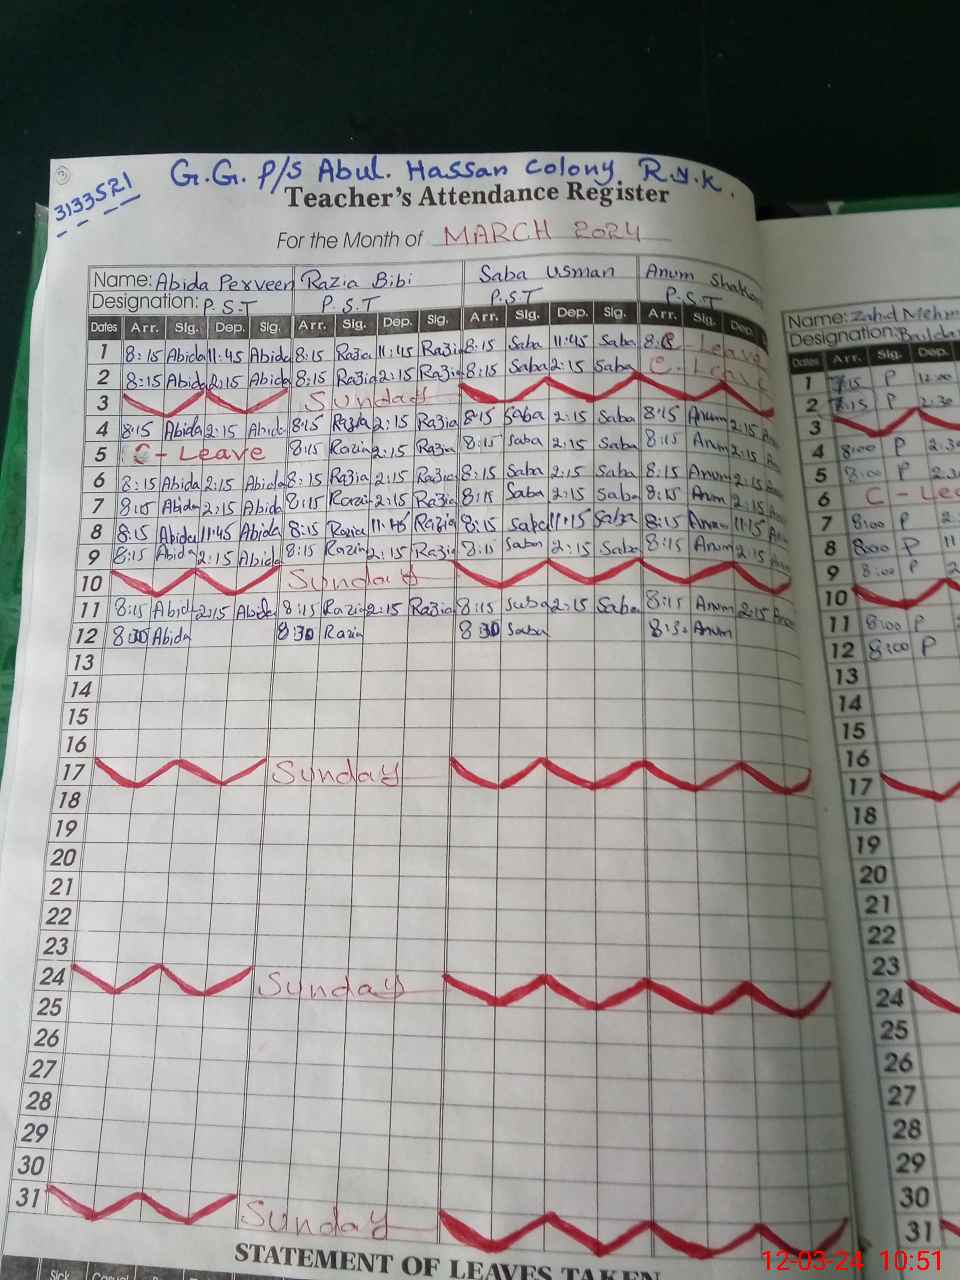 3
G.G. P/S Abul. Hassan Colony R.Y.K.
3133521
Teacher's Attendance Register
For the Month of MARCH 2024
Name: Abida Perveen Razia Bibi Saba Usman Anum
Designation: P.S.T P.S.T P.S.T P.S.T
Dates Arr. Sig. Dep. Sig. Arr. Sig. Dep. Sig. Arr. Sig. Dep. Sig. Arr. Sig. Dep.
1 8:15 Abida 11:45 Abida 8:15 Razia 11:45 Razia 8:15 Saba 11:45 Saba C-Leave
2 8:15 Abida 2:15 Abida 8:15 Razia 2:15 Razia 8:15 Saba 2:15 Saba C-Leave
3 Sunday
4 8:15 Abida 2:15 Abida 8:15 Razia 2:15 Razia 8:15 Saba 2:15 Saba 8:15 Anum 2:15
5 C-Leave 8:15 Razia 2:15 Razia 8:15 Saba 2:15 Saba 8:15 Anum 2:15
6 8:15 Abida 2:15 Abida 8:15 Razia 2:15 Razia 8:15 Saba 2:15 Saba 8:15 Anum 2:15
7 8:15 Abida 2:15 Abida 8:15 Razia 2:15 Razia 8:15 Saba 2:15 Saba 8:15 Anum 2:15
8 8:15 Abida 11:45 Abida 8:15 Razia 11:45 Razia 8:15 Saba 11:15 Saba 8:15 Anum 11:15
9 8:15 Abida 2:15 Abida 8:15 Razia 2:15 Razia 8:15 Saba 2:15 Saba 8:15 Anum 2:15
10 Sunday
11 8:15 Abida 2:15 Abida 8:15 Razia 2:15 Razia 8:15 Saba 2:15 Saba 8:15 Anum 2:15
12 8:30 Abida 8:30 Razia 8:30 Saba Anum
13
14
15
16
17 Sunday
18
19
20
21
22
23
24 Sunday
25
26
27
28
29
30
31 Sunday
STATEMENT OF LEAVES TAKEN
Sick Casual
Name:
Designation:
Dates Arr. Sig. Dep.
1 7:15 P 12:00
2 7:15 P 2:30
3
4 8:00 P
5 8:00 P
6 C-
7 8:00 P
8 8:00 P
9 8:00 P
10
11 8:00 P
12 8:00 P
13
14
15
16
17
18
19
20
21
22
23
24
25
26
27
28
29
30
31
12-03-24 10:51